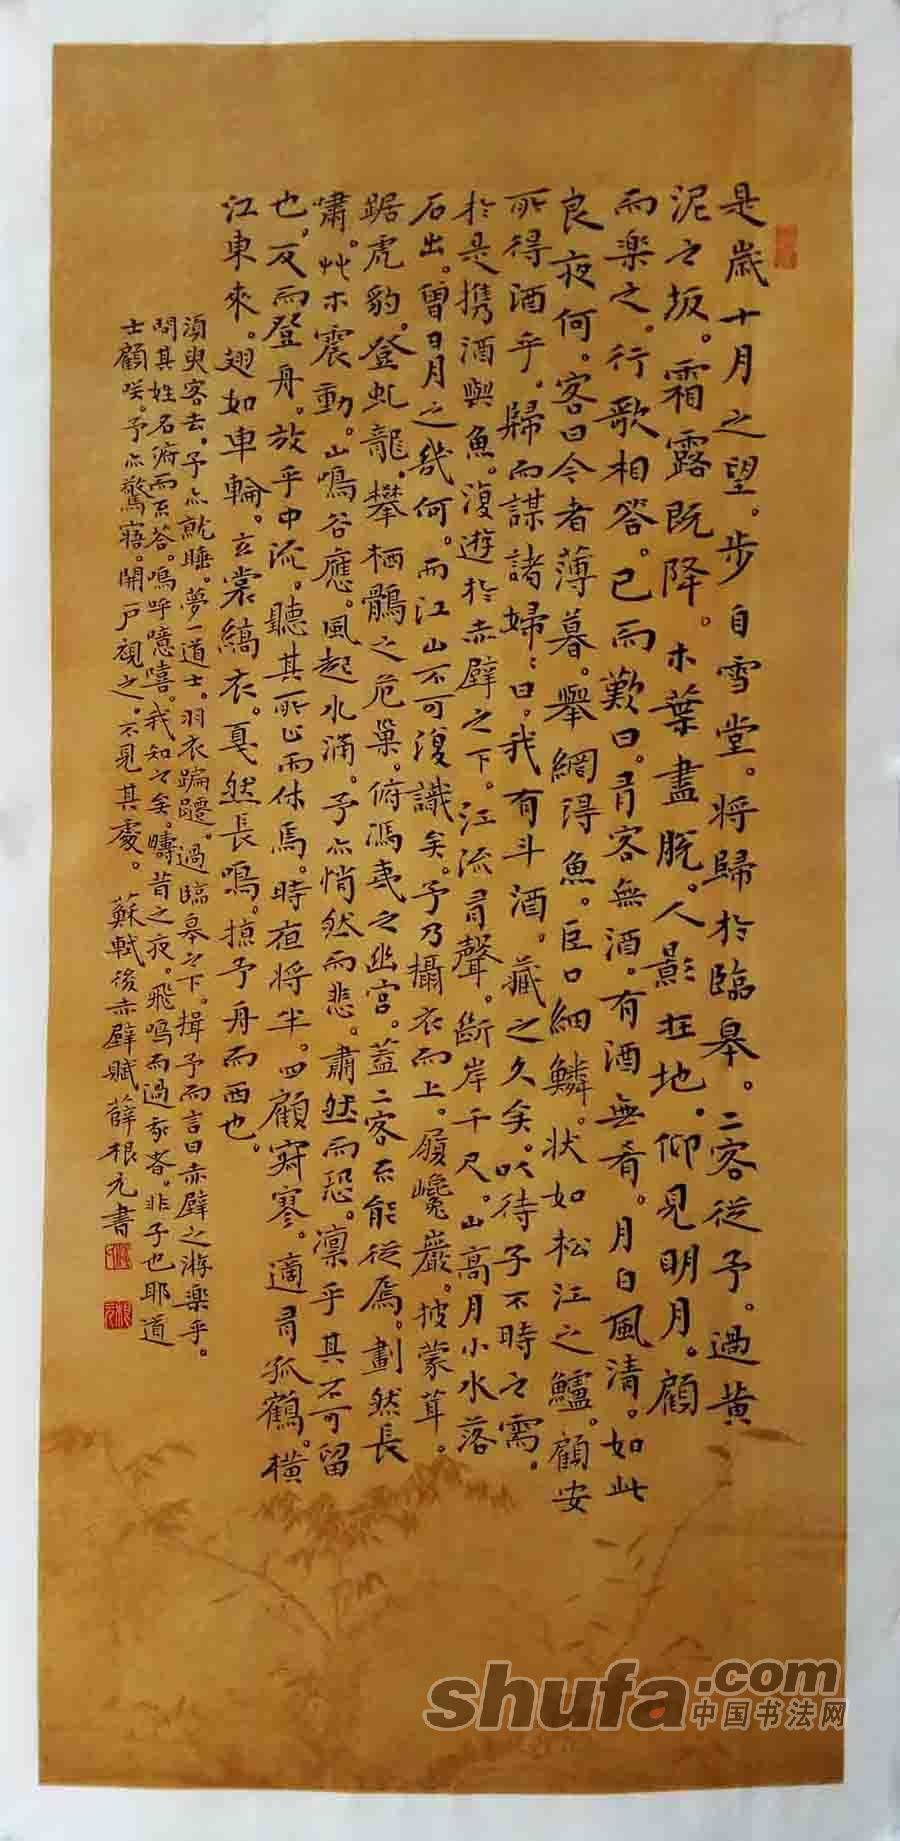 是歲十月之望。步自雪堂。将歸於臨皋。二客從予。過黄
泥之坂。霜露既降。木葉盡脱。人影在地。仰見明月。顧
而楽之。行歌相答。已而歎曰。有客無酒。有酒無肴。月白風清。如此
良夜何。客曰今者薄暮。舉網得魚。巨口細鱗。状如松江之鱸。顧安
所得酒乎。歸而謀諸婦。婦曰。我有斗酒。藏之久矣。以待子不時之需。
於是携酒與魚。復遊於赤壁之下。江流有聲。断岸千尺。山高月小水落
石出。曾日月之幾何。而江山不可復識矣。予乃攝衣而上。履巉巖。披蒙茸。
踞虎豹。登虬龍。攀栖鶻之危巢。俯馮夷之幽宫。蓋二客不能從焉。劃然長
嘯。艸木震動。山鳴谷應。風起水涌。予亦悄然而悲。肅然而恐。凛乎其不可留
也。反而登舟。放乎中流。聽其所止而休焉。時夜将半。四顧寂寥。適有孤鶴。横
江東來。翅如車輪。玄裳縞衣。戛然長鳴。掠予舟而西也。
須臾客去。予亦就睡。夢一道士。羽衣蹁躚。過臨皋之下。揖予而言曰赤壁之游楽乎。
問其姓名俯而不答。嗚呼噫嘻。我知之矣。疇昔之夜。飛鳴而過我者。非子也耶道
士顧笑。予亦驚寤。開户視之。不見其處。 蘇軾後赤壁賦 薛根元書
shufa.com
中国书法网